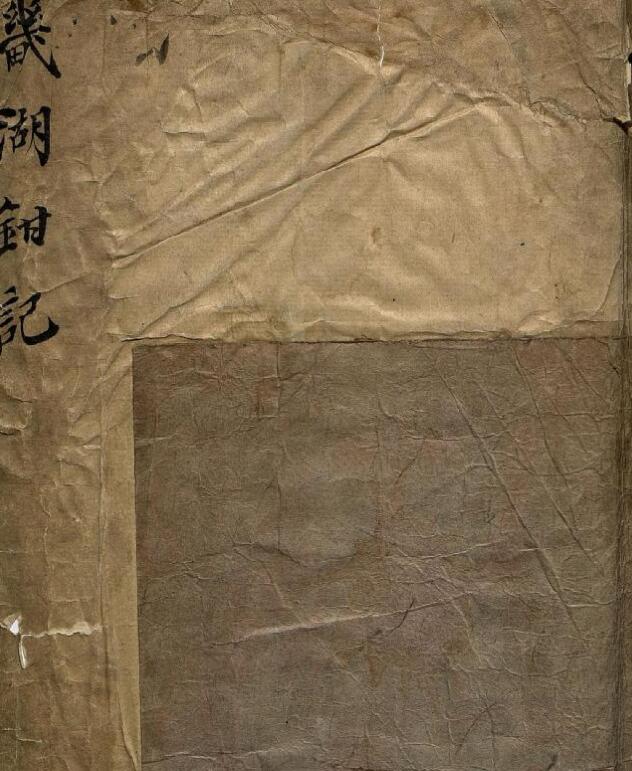 畿湖鉗記